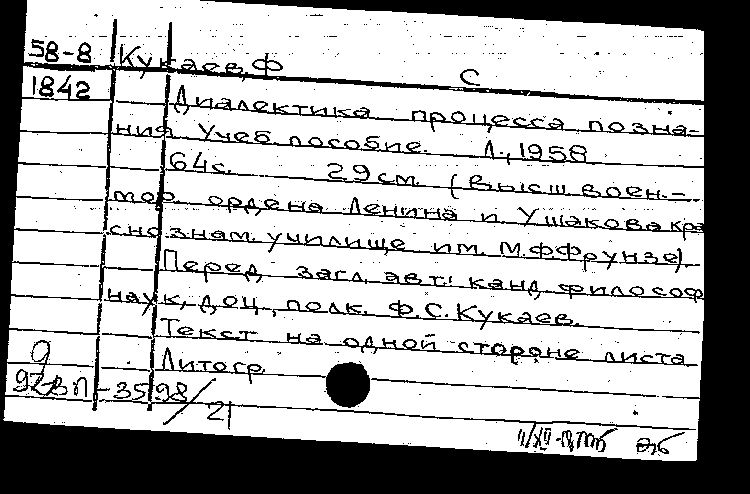 58-8 Кукаев, Ф С
1842
Диалектика процесса позна-
ния. Учеб. пособие. Л., 1958.
64с. 29см. (Высш. воен.-
мор. ордена Ленина и Ушакова Кра
снознам. училище им. М.Ф.Фрунзе).
Перед загл. авт.: канд. философ
наук, доц., полк. Ф.С. Кукаев.
Текст на одной стороне листа
Литогр.
9
92-ВП-3598/21